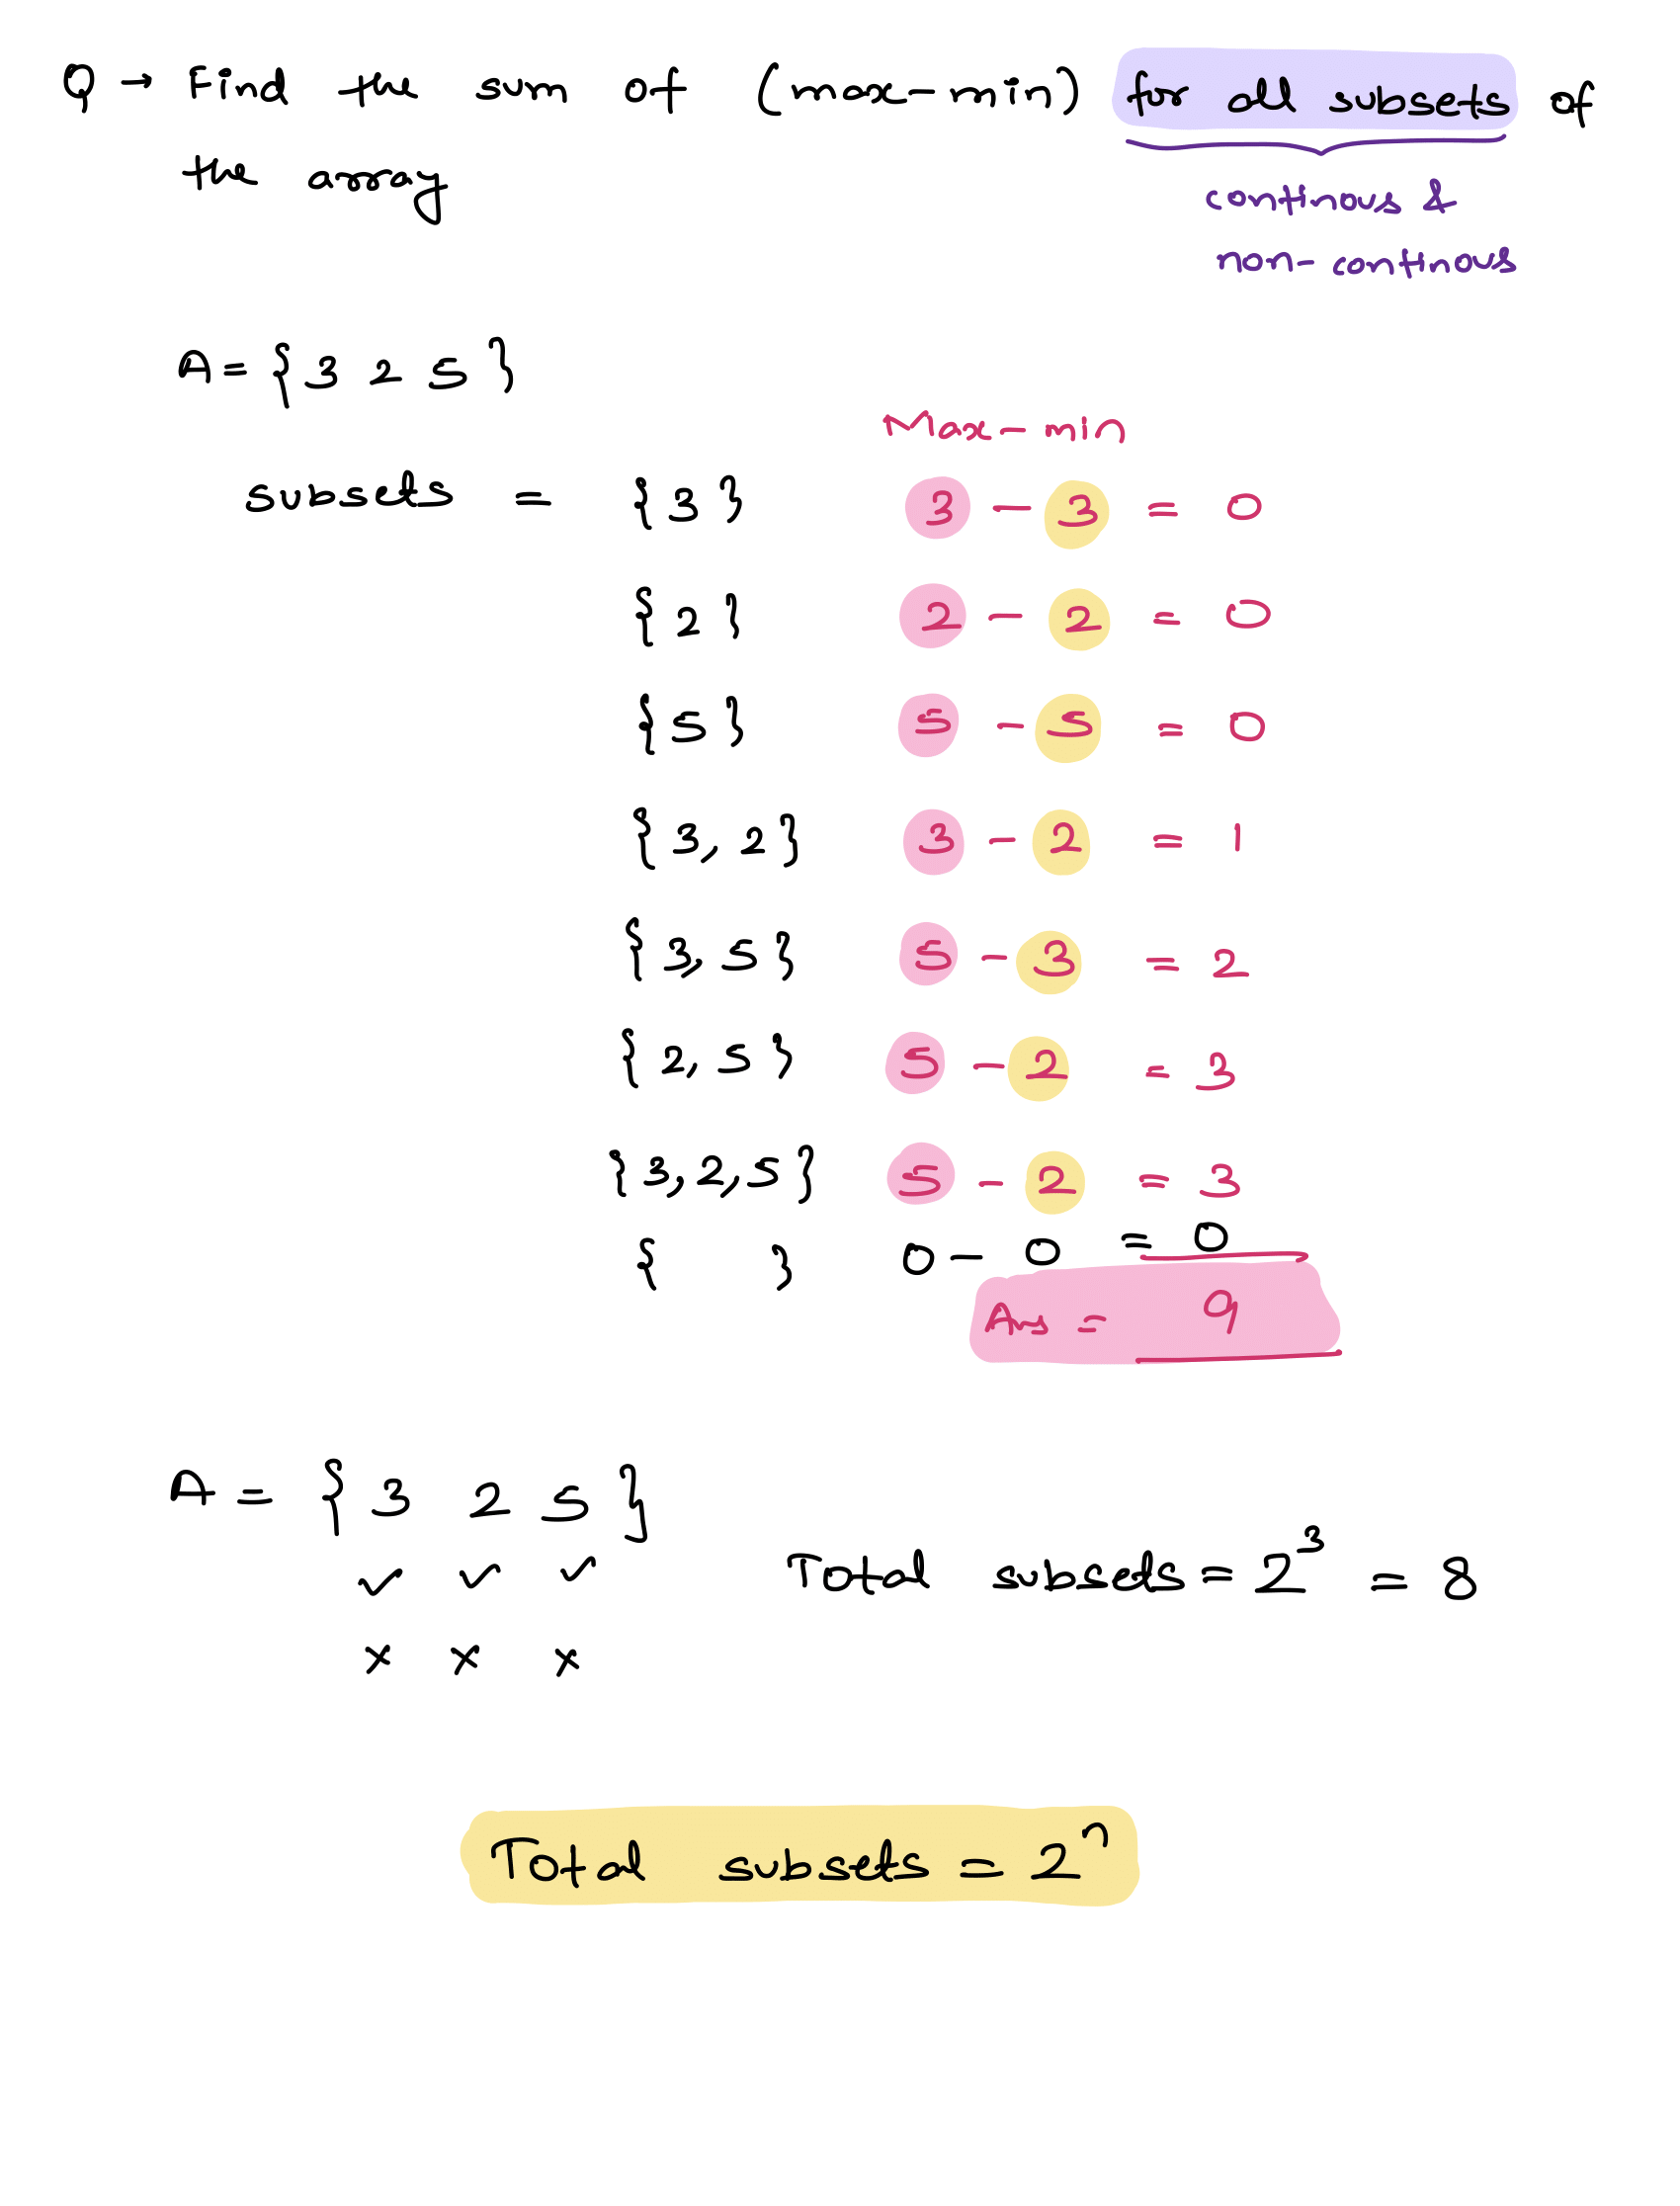 Q → Find the sum of (max-min) for all subsets of
the array
continous &
non-continous
A = { 3 2 5 }
Max-min
subsets = { 3 } 3 - 3 = 0
{ 2 } 2 - 2 = 0
{ 5 } 5 - 5 = 0
{ 3, 2 } 3 - 2 = 1
{ 3, 5 } 5 - 3 = 2
{ 2, 5 } 5 - 2 = 3
{ 3, 2, 5 } 5 - 2 = 3
{ } 0 - 0 = 0
Ans = 9
A = { 3 2 5 }
✓ ✓ ✓ Total subsets = 2³ = 8
× × ×
Total subsets = 2ⁿ